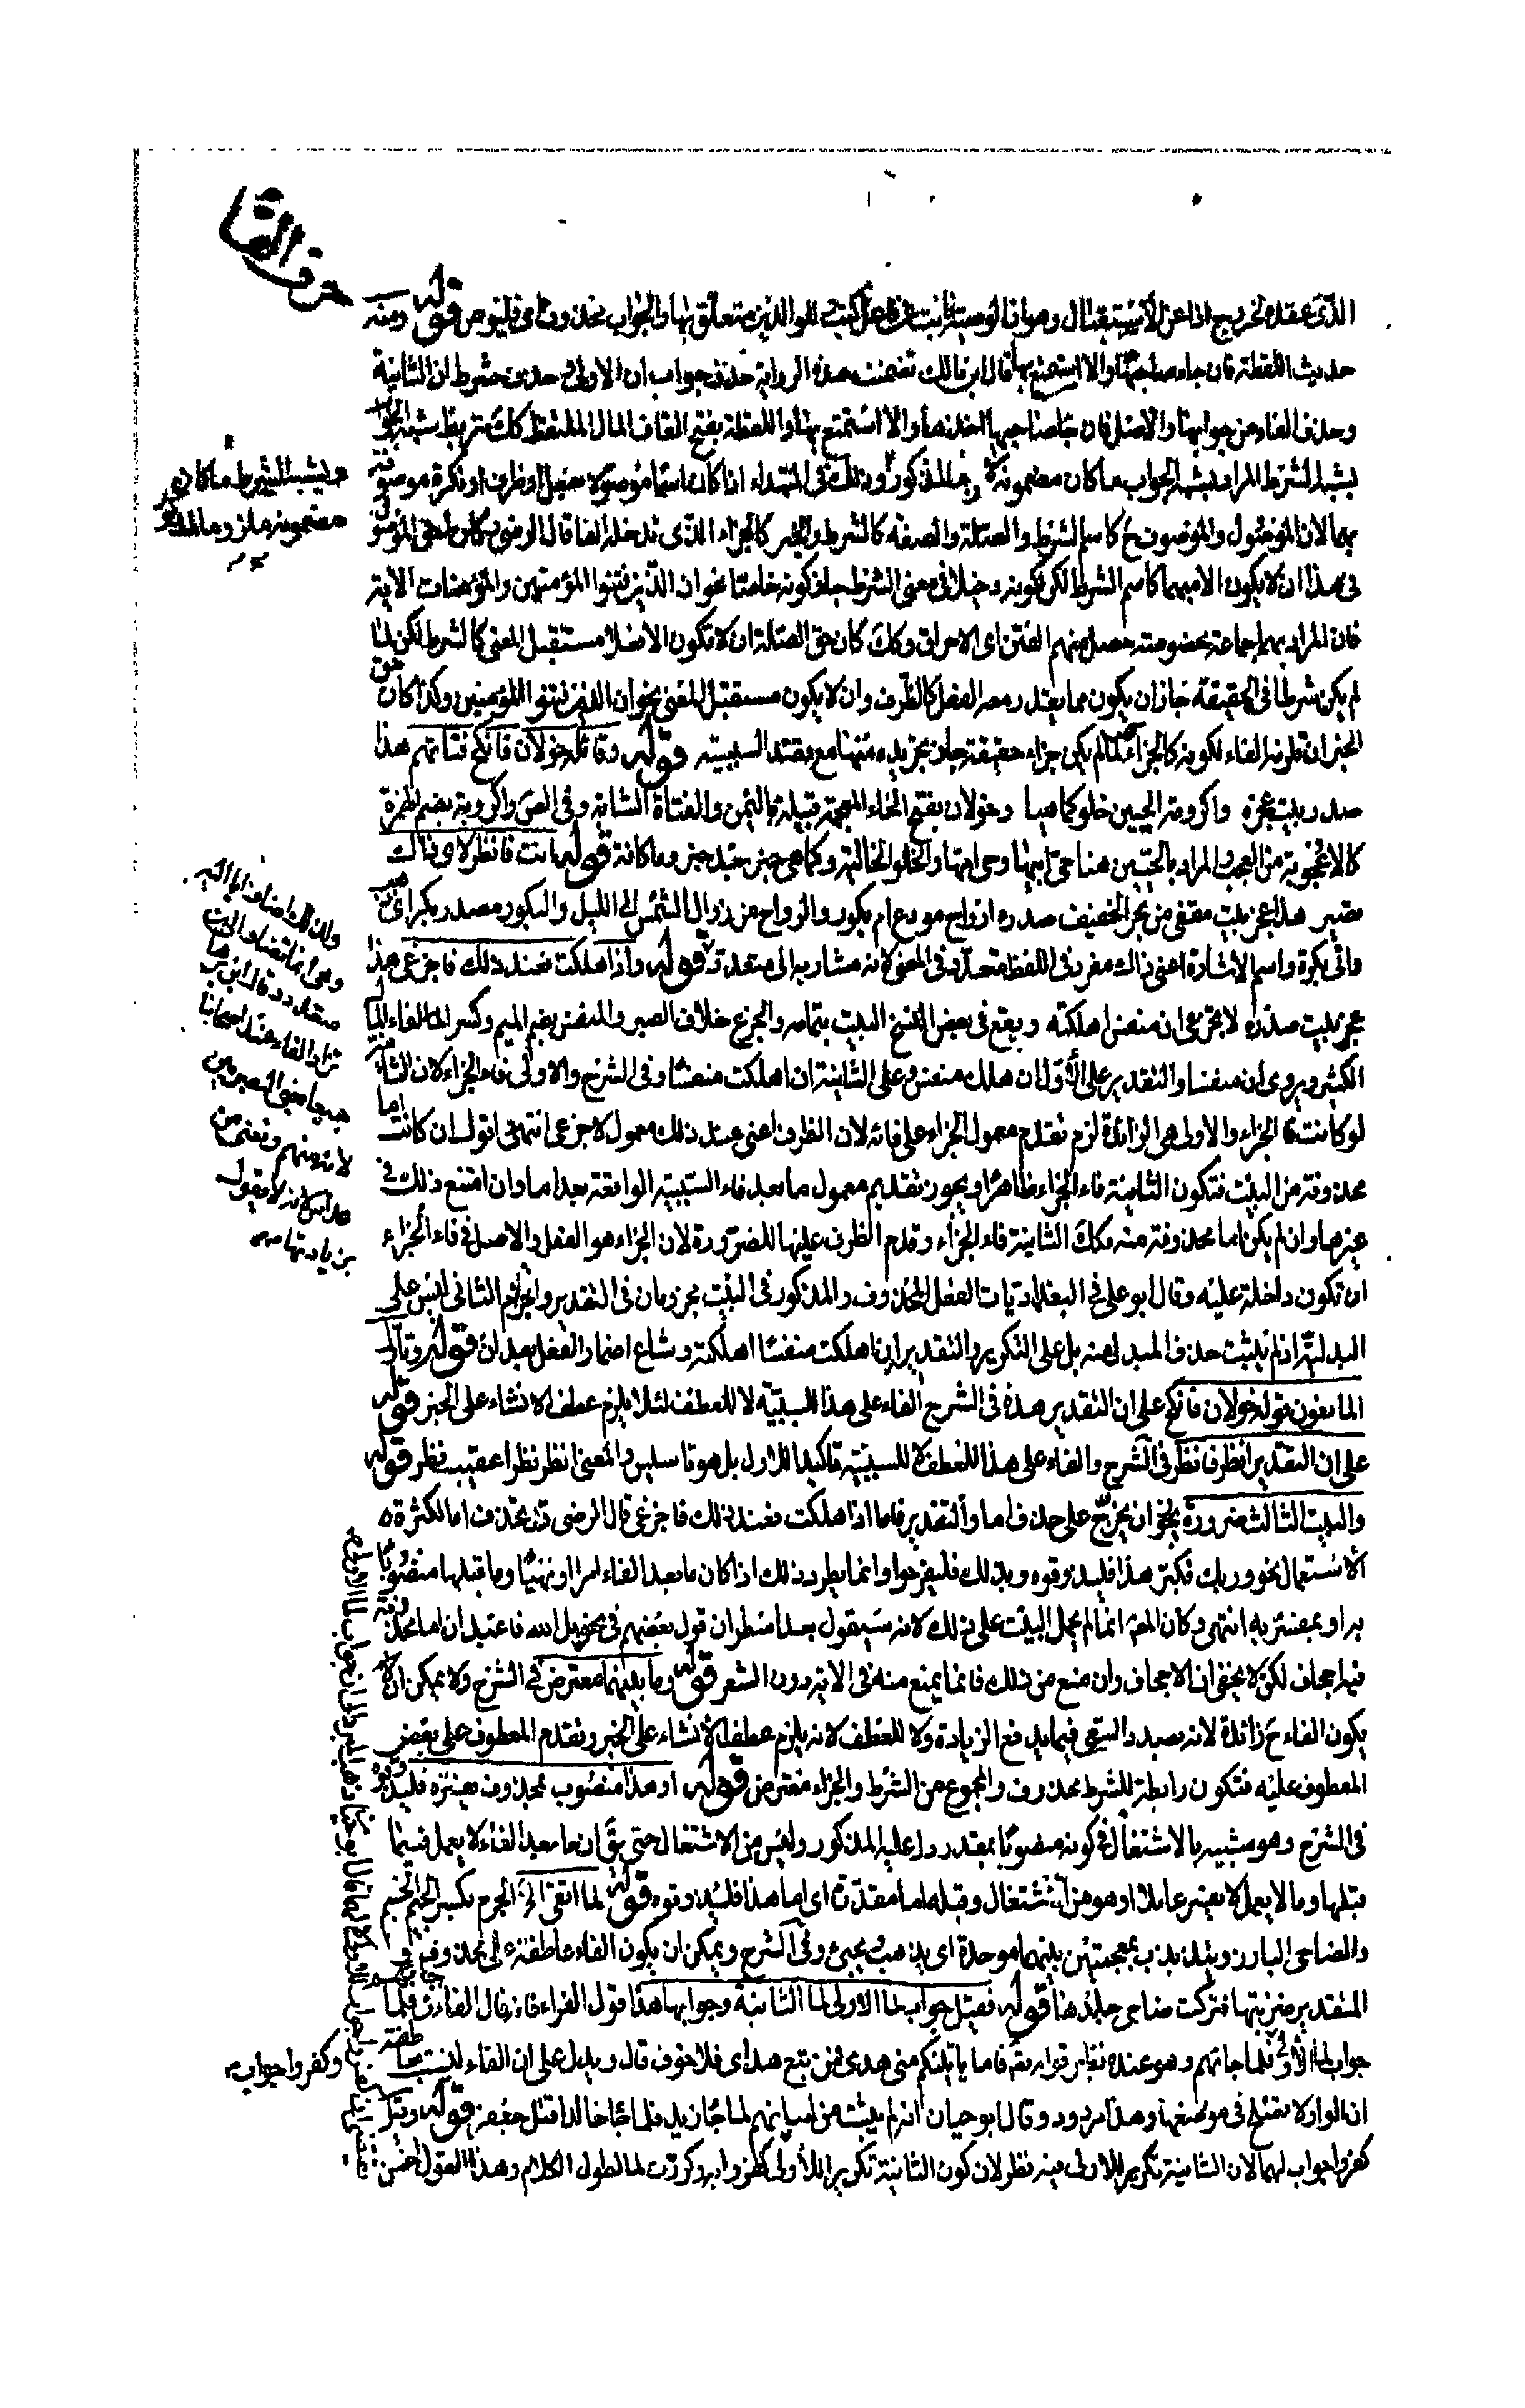 حرف الفا
الذى عقده لخروج اذا عن الاستقبال وهو ان الوصية نايب عن فاعل كتب للوالدين متعلق بها والجواب محذوف اى فليوص قوله ومنه
حديث اللقطة فان جاء صاحبها والا استمتع بها قال ابن مالك تضمنت هذه الرواية حذف جواب ان الاولى وحذف شرط ان الثانية
وحذف الفاء من جوابها والاصل فان جا صاحبها اخذها والا استمتع بها واللقطة بفتح القاف المال الملتقط كك تربط شبه الجواب
بشبه الشرط المراد بشبه الجواب ما كان مضمونه المذكور وذلك فى المبتداء اذا كان اسما موصولا بفعل او ظرف او نكرة موصوفة
بهما لان الموصول والموصوف ح كاسم الشرط والصلة والصفة كالشرط والخبر كالجزاء الذى تدخله الفا قال الرضى وكان حق الموصول
فى هذا ان لا يكون الا مبهما كاسم الشرط لكن لكونه دخيلا فى معنى الشرط جاز كونه خاصا نحو ان الذين فتنوا المؤمنين والمؤمنات الاية
فان المراد بهم جماعة مخصوصة حصل منهم الفتن اى الاحراق وكك كان حق الصلة ان لا تكون الا فعلا مستقبل المعنى كالشرط لكن لما
لم يكن شرطا فى الحقيقة جاز ان يكون مما يقدر معه الفعل كالظرف وان لا يكون مستقبل المعنى نحو ان الذين فتنوا المؤمنين وكذا كان حق
الخبر ان تلزمه الفاء لكونه كالجزاء لكن لما لم يكن جزاء حقيقة جاز تجريده منها مع قصد السببية قوله وقائلة خولان فانكح فتاتهم هذا
صدر بيت عجزه واكرومة الحيين خلو كما هيا وخولان بفتح الخاء المعجمة قبيلة باليمن والفتاة الشابة وفى الصحاح والاكرومة بضم الهمزة
كالاعجوبة من العجب والمراد بالحيين هنا حى ابيها وحى امها والخلو الخالية وكما هى خبر بعد خبر وما كافة قوله انت فانظر لاى ذاك
تصير هذا عجز بيت مقفى من بحر الخفيف صدره ارواح مودع ام بكور والرواح من زوال الشمس الى الليل والبكور مصدر بكر اى
اتى بكرة واسم الاشارة اعنى ذاك مفرد فى اللفظ متعدد فى المعنى لانه مشار به الى متعدد قوله واذا هلكت فعند ذلك فاجزعى هذا
عجز بيت صدره لا تجزعى ان منفس اهلكته ويقع فى بعض النسخ البيت بتمامه والجزع خلاف الصبر والمنفس بضم الميم وكسر الفاء المال
الكثير ويروى ان منفسا والتقدير على الاول ان هلك منفس وعلى الثانية ان اهلكت منفسا وفى الشرح والاولى فاء الجزاء لان الثانية
لو كانت فاء الجزاء والاولى هى الزائدة لزم تقدم معمول الجزاء على فائه لان الظرف اعنى عند ذلك معمول لاجزعى انتهى اقول ان كانت اما
محذوفة من البيت فتكون الثانية فاء الجزاء ظاهرا ويجوز تقديم معمول ما بعد فاء السببية الواقعة بعد اما وان امتنع ذلك فى
غيرها وان لم يكن اما محذوفة منه فكك الثانية فاء الجزاء وقدم الظرف عليها للضرورة لان الجزاء هو الفعل والاصل فى فاء الجزاء
ان تكون داخلة عليه وقال ابو على فى البغداديات الفعل المحذوف والمذكور فى البيت مجزومان فى التقدير وانجزام الثانى ليس على
البدلية اذ لم يثبت حذف المبدل منه بل على التكرير والتقدير ان اهلكت منفسا اهلكته وشاع اضمار الفعل بعد ان قوله وتأول
المانعون قوله خولان فانكح على ان التقدير هذه فى الشرح الفاء على هذا للسببية لا للعطف لئلا يلزم عطف الانشاء على الخبر قوله
على ان التقدير انظر فانظر فى الشرح والفاء على هذا للعطف لا للسببية تاكيدا للاول بل هو تاسيس والمعنى انظر نظرا عقيب نظر قوله
والبيت الثالث ضرورة يجوز ان يخرج على حذف اما والتقدير فاما اذا هلكت فعند ذلك فاجزعى قال الرضى قد تحذف اما لكثرة
الاستعمال نحو وربك فكبر هذا فليذوقوه وبذلك فليفرحوا وانما يطرد ذلك اذا كان ما بعد الفاء امرا او نهيا وما قبلها منصوبا
به او بمفسر به انتهى وكان المص انما لم يحمل البيت على ذلك لانه سيقول بعد اسطر ان قول بعضهم فى نحو بل الله فاعبد ان اما محذوفة
فيه اجحاف لكن لا يخفى ان الاجحاف وان منع من ذلك فانما يمنع منه فى الاية دون الشعر قوله وما بينهما معترض فى الشرح ولا يمكن ان
يكون الفاء ح زائدة لانه بصدد السعى فيما يدفع الزيادة ولا للعطف لانه يلزم عطف الانشاء على الخبر وتقدم المعطوف على بعض
المعطوف عليه فتكون رابطة للشرط محذوف والمجموع من الشرط والجزاء معترض قوله او هذا منصوب بمحذوف يفسره فليذوقوه
فى الشرح وهو شبيه بالاشتغال فى كونه منصوبا بمقدر دل عليه المذكور وليس من الاشتغال حتى يق ان ما بعد الفاء لا يعمل فيما
قبلها وما لا يعمل لا يفسر عاملا او هو من الاشتغال وقبله اما مقدرة اى اما هذا فليذوقوه قوله لما اتقى الخ الجرم بكسر الجيم الجسم
والضاحى البارز ويتذبذب بمعجمتين بينهما موحدة اى يذهب ويجيئ وفى الشرح ويمكن ان يكون الفاء عاطفة على محذوف
التقدير ضربتها فتركت ضاحى جلدها قوله فقيل جواب لما الاولى لما الثانية وجوابها هذا قول الفراء فانه قال الفاء فى فلما
جواب لما الاولى فلما جاءتهم وهو عنده نظير قوله تعه فاما ياتينكم منى هدى فمن تبع هداى فلا خوف قال ويدل على ان الفاء ليست عاطفة
ان الواو لا تصلح فى موضعها وهذا مردود وقال ابو حيان انه لم يثبت من لسانهم لما جاء زيد فلما جاء خالد اقبل جعفر قوله وقيل
كفروا جواب لهما لان الثانية تكرير للاولى فيه نظر لان كون الثانية تكريرا للاولى كفروا به وكررت لما لطول الكلام وهذا القول احسن
بشبه الشرط ما كان
مضمونه ملزوما
ولذلك اضاف اى اليه
وهى انما تضاف الى
متعدد وقال ابن
تزاد الفاء عند اصحابنا
جميعا
لانه
بزيادتها
وكفروا جواب